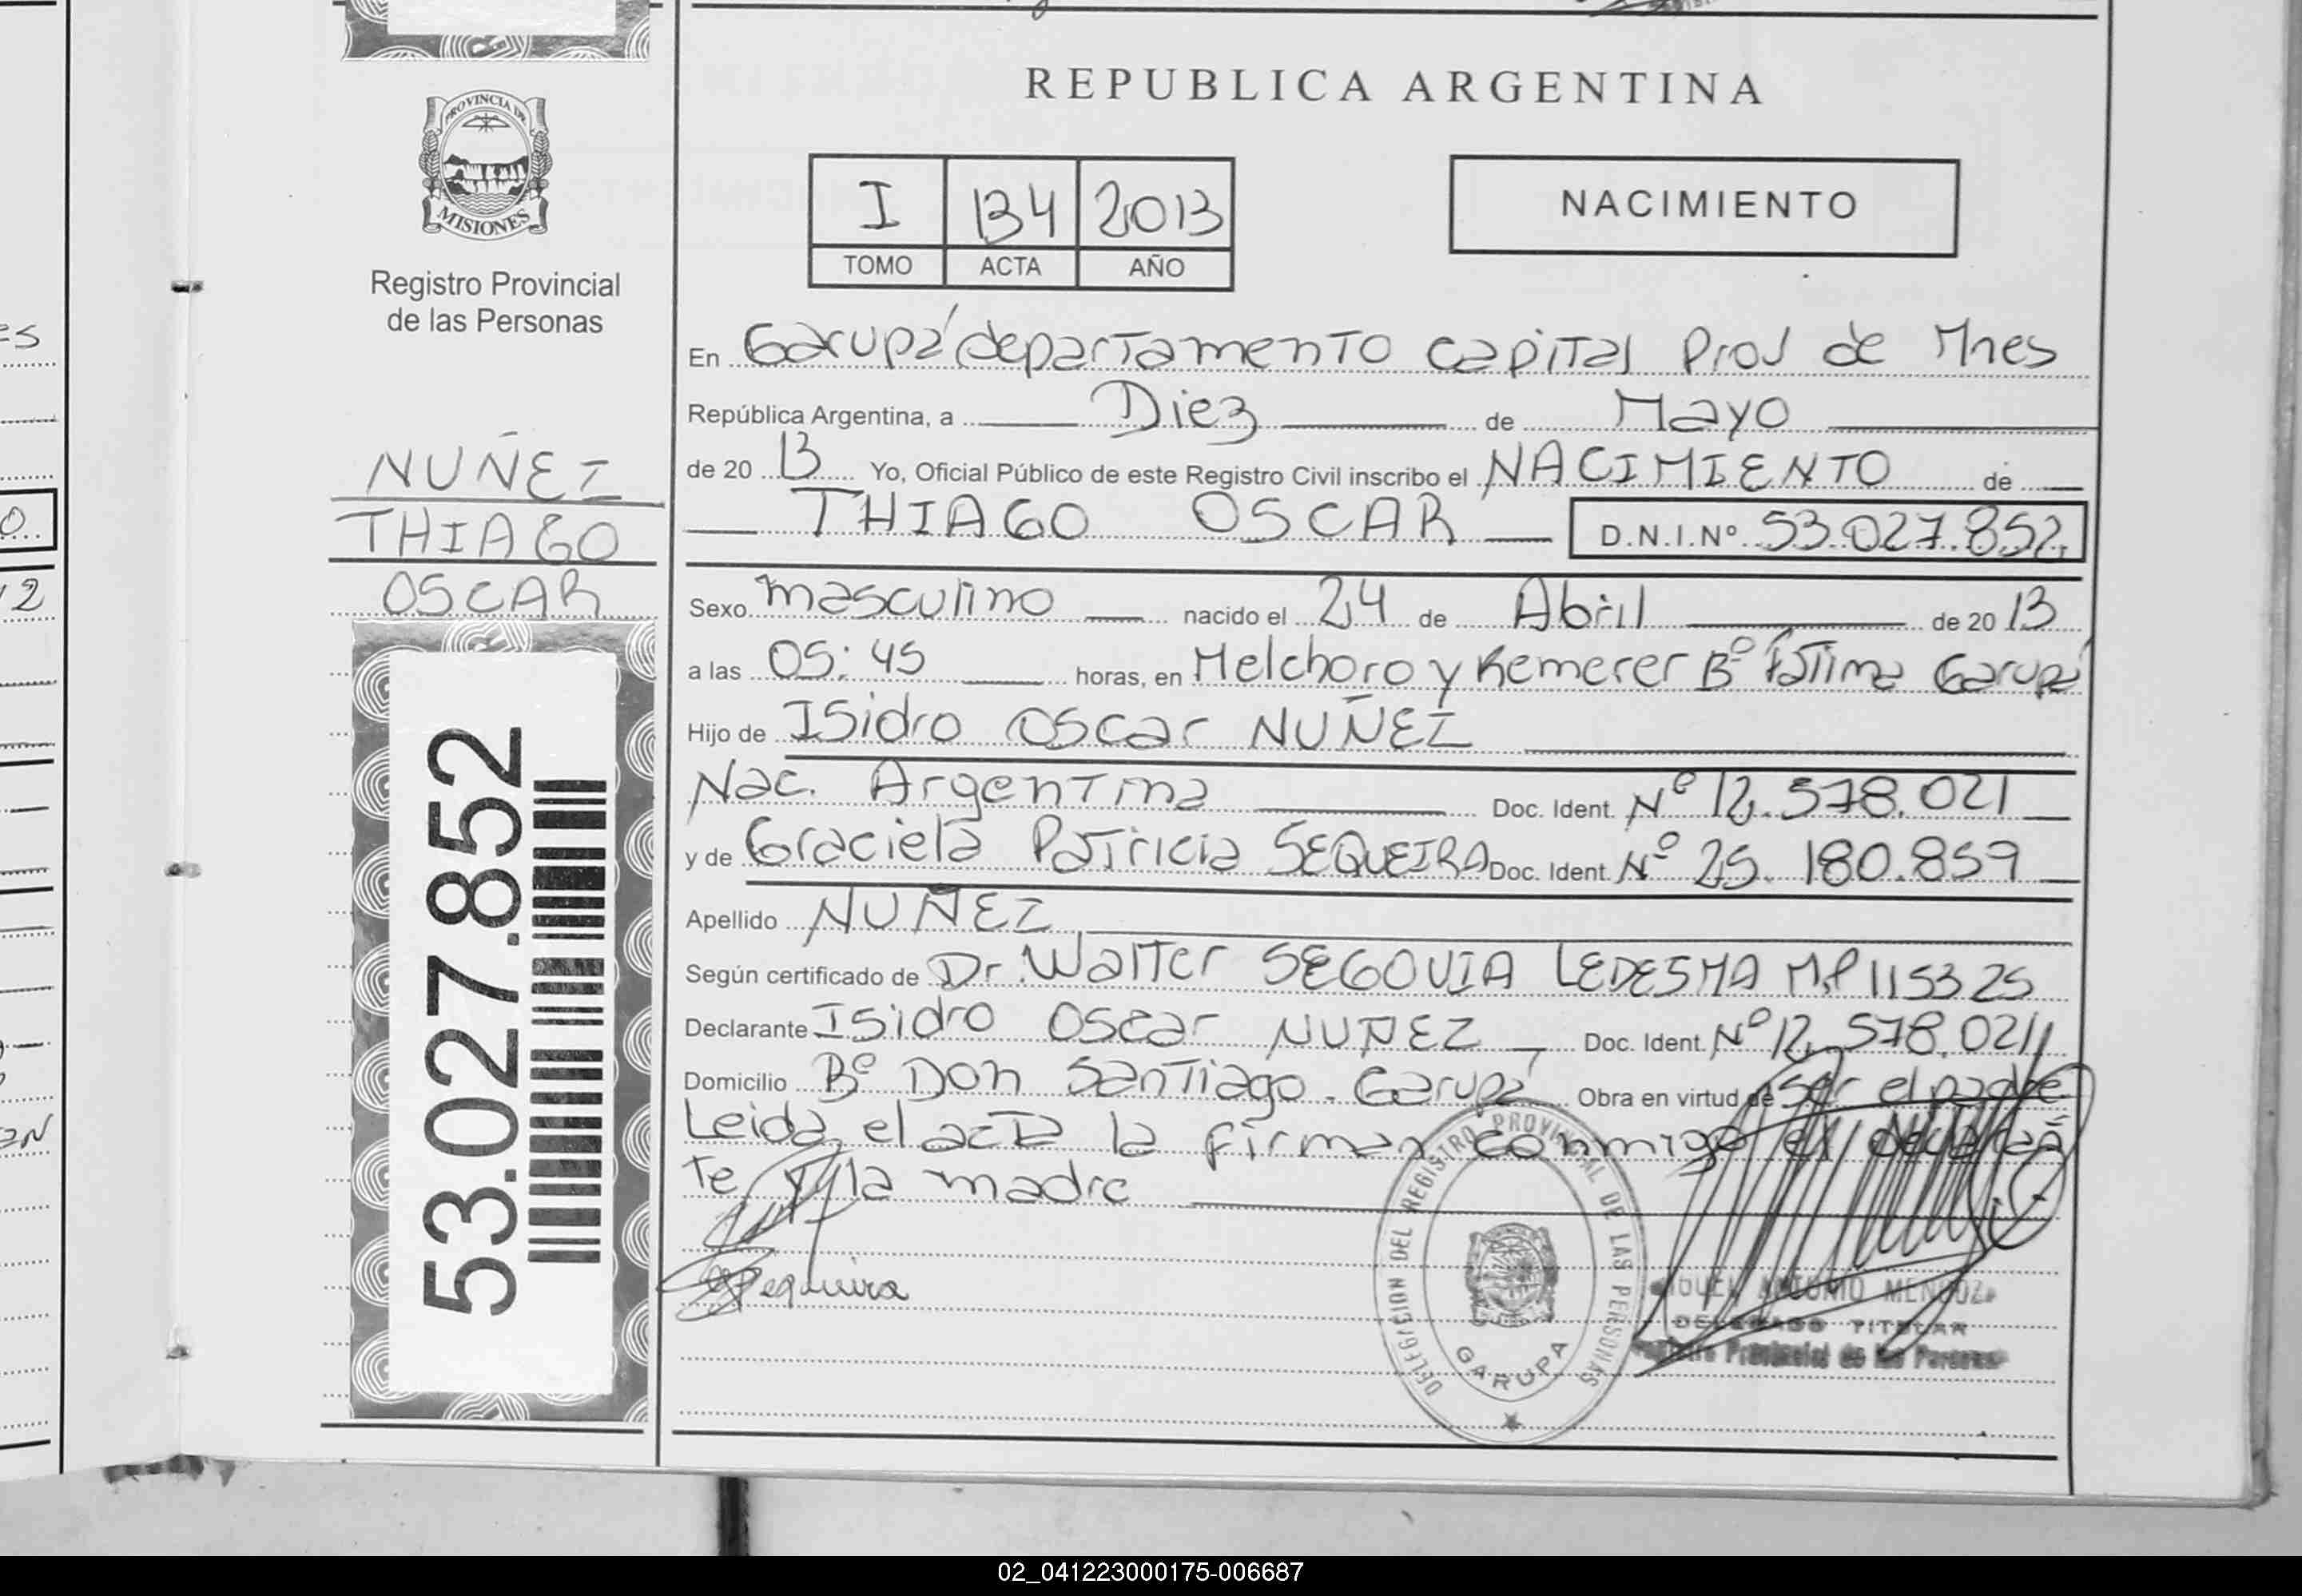 PROVINCIA DE
MISIONES
Registro Provincial
de las Personas
NUÑEZ
THIAGO
OSCAR
53.027.852
REPUBLICA ARGENTINA
I 134 2013
TOMO ACTA AÑO
NACIMIENTO
En Garupá departamento Capital Prov de Mnes
República Argentina, a Diez de Mayo
de 20 13 Yo, Oficial Público de este Registro Civil inscribo el NACIMIENTO de
THIAGO OSCAR D.N.I.Nº 53.027.852
Sexo masculino nacido el 24 de Abril de 20 13
a las 05:45 horas, en Melchoro y Kemerer Bº Fátima Garupá
Hijo de Isidro Oscar NUÑEZ
Nac. Argentina Doc. Ident. Nº 12.578.021
y de Graciela Patricia SEQUEIRA Doc. Ident. Nº 25.180.859
Apellido NUÑEZ
Según certificado de Dr. Walter SEGOVIA LEDESMA M.P 1153 25
Declarante Isidro Oscar NUÑEZ Doc. Ident. Nº 12.578.021
Domicilio Bº Don Santiago - Garupá Obra en virtud de ser el padre
Leida, el acta la firman conmigo el declaran
te y la madre
Sequeira
DELEGACION DEL REGISTRO PROVINCIAL DE LAS PERSONAS
GARUPA
MIGUEL ANTONIO MENDOZA
DELEGADO TITULAR
Registro Provincial de las Personas
ES
0
12
02_041223000175-006687